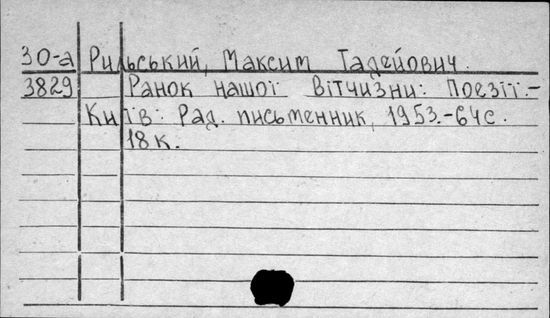 30-а Рильський, Максим Тадейович.
3829 Ранок нашої Вітчизни: Поезії.-
Київ: Рад. письменник, 1953.-64с.
18к.